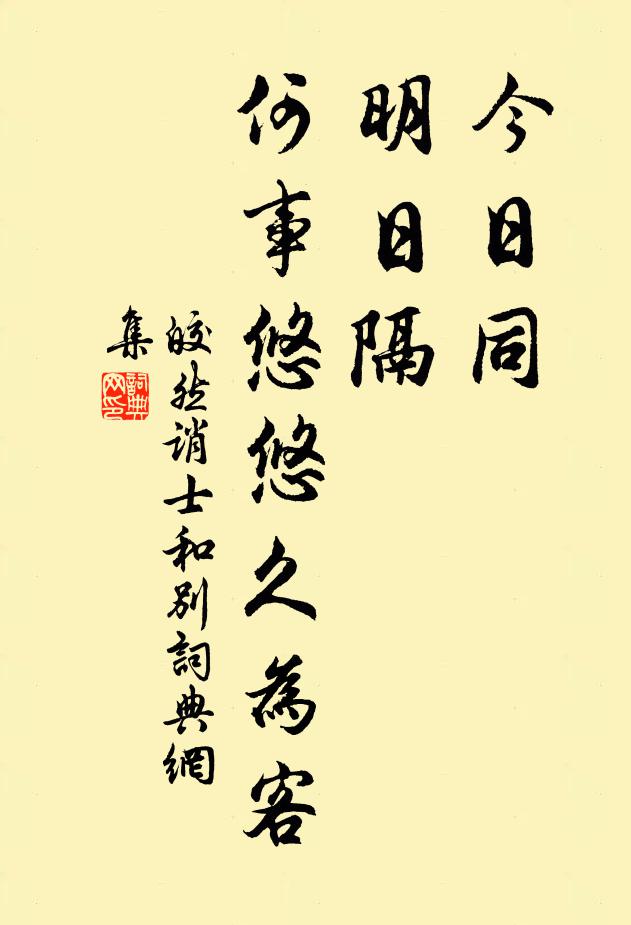 今日同
明日隔
何事悠悠久為客
皎然誚士和別詞典網
集
詞典
网印